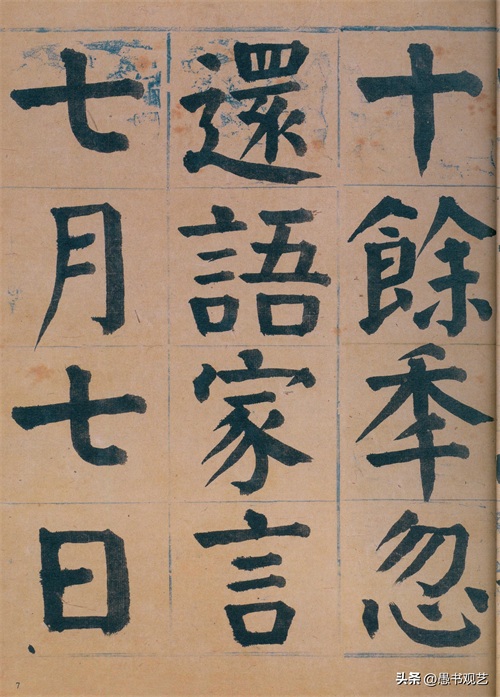 十餘秊忽
還語家言
七月七日
7
头条 @愚书观艺